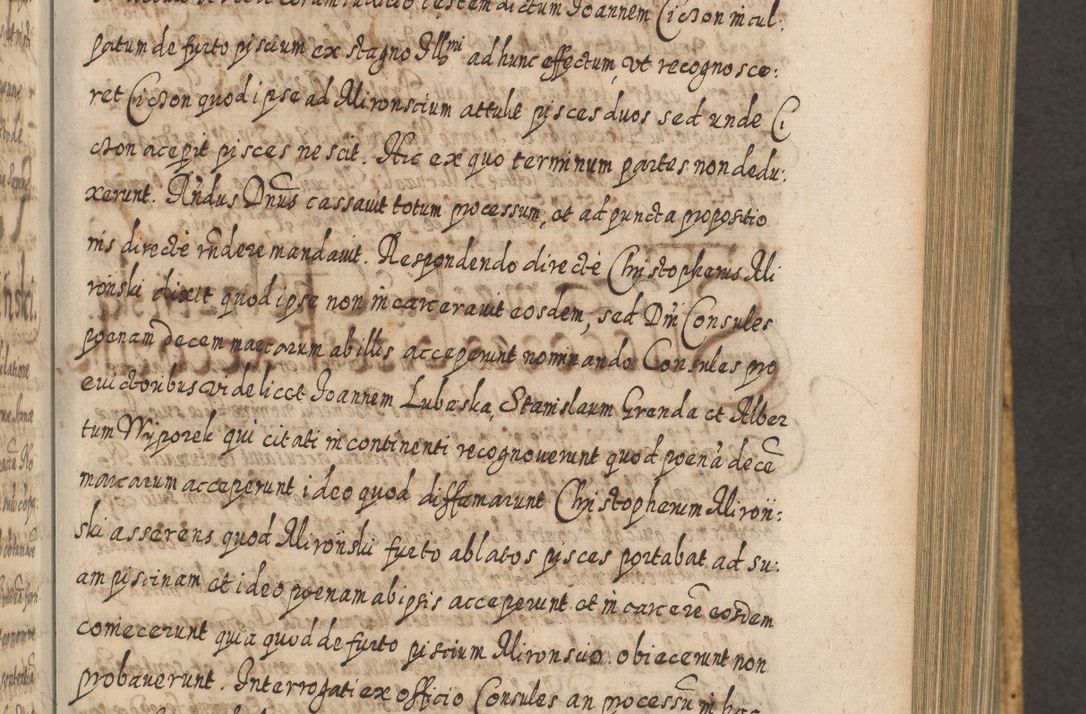 coram iudicio testem dictum Joannem Cichon incul:
patum de furto piscium ex stagno Illmi ad hunc effectum, ut recognosce:
ret Cichon quod ipse ad Mironscium attulit pisces duos sed unde Ci
chon acepit pisces nescit. Hic ex quo terminum partes non dedu:
xerunt. Rndus Dnus cassavit totum processum, et ad puncta propositio
nis directè rñdere mandavit. Respondendo directè Christopherus Mi
roński dixit quod ipse non incarceravit eosdem, sed Dni Consules
poenam decem marcarum ab illis acceperunt nominando Consules pro
evictoribus videlicet Joannem Lubaska, Stanislaum Grenda et Alber
tum Wyporek qui citati in continenti recognoverunt quod poenã decẽ
marcarum acceperunt ideo quod diffamarunt Christopherum Miroń:
ski asserens quod Miroński furto ablatos pisces portabat ad su:
am piscinam et ideo poenam ab ipsis acceperunt et incarcerẽ eosdem
comiecerunt quia quod de furto piscium Mironscio obiecerunt non
probaverunt. Interrogati ex officio Consules an processũ in hac